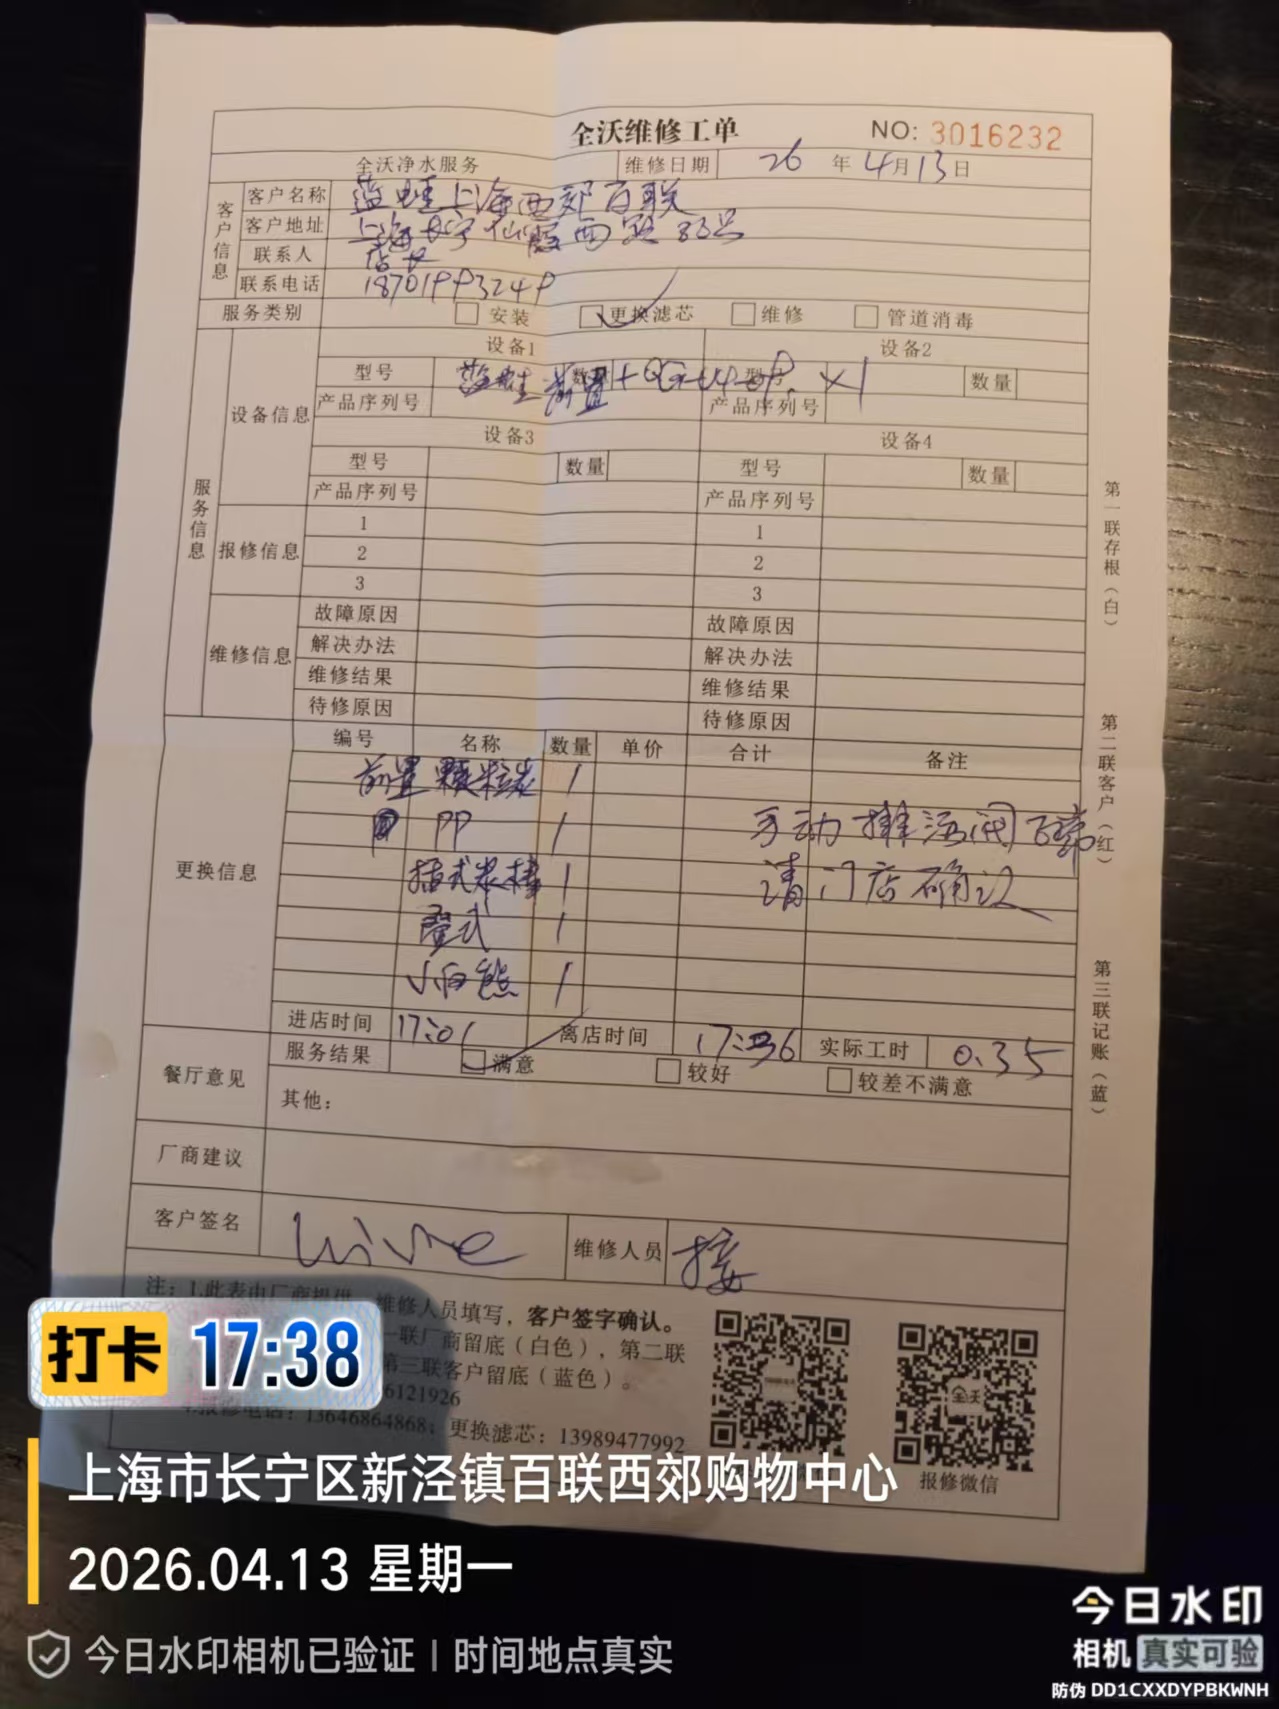 全沃维修工单 NO: 3016232
全沃净水服务 维修日期 26 年 4月13日
客户信息
客户名称 蓝蛙上海西郊百联
客户地址 上海长宁仙霞西路88号
联系人 店长
联系电话 18701993249
服务类别 安装 更换滤芯 维修 管道消毒
服务信息
设备信息
设备1 设备2
型号 蓝蛙前置+QG-U4 数量 型号 ×1 数量
产品序列号 产品序列号
设备3 设备4
型号 数量 型号 数量
产品序列号 产品序列号
报修信息
1 1
2 2
3 3
维修信息
故障原因 故障原因
解决办法 解决办法
维修结果 维修结果
待修原因 待修原因
更换信息
编号 名称 数量 单价 合计 备注
前置颗粒炭 1
PP 1 手动排污阀
插式炭棒 1 请门店确认
叠式 1
小白熊 1
进店时间 17:01 离店时间 17:36 实际工时 0.35
餐厅意见
服务结果 满意 较好 较差不满意
其他:
厂商建议
客户签名 维修人员 接
注: 1.此表由厂商提供,维修人员填写,客户签字确认。
一联厂商留底(白色),第二联
第三联客户留底(蓝色)。
6121926
报修电话: 13646864868; 更换滤芯: 13989477992
全沃
报修微信
第一联存根(白)
第二联客户(红)
第三联记账(蓝)
打卡 17:38
上海市长宁区新泾镇百联西郊购物中心
2026.04.13 星期一
今日水印相机已验证 | 时间地点真实
今日水印
相机 真实可验
防伪 DD1CXXDYPBKWNH